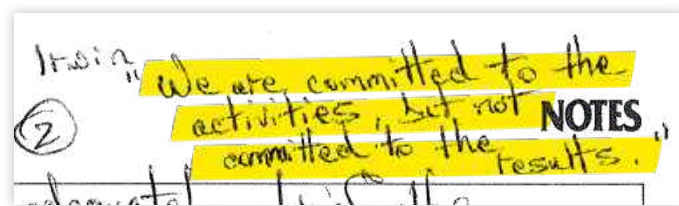 Irwin "We are committed to the
② activities, but not NOTES
committed to the results."
adequate